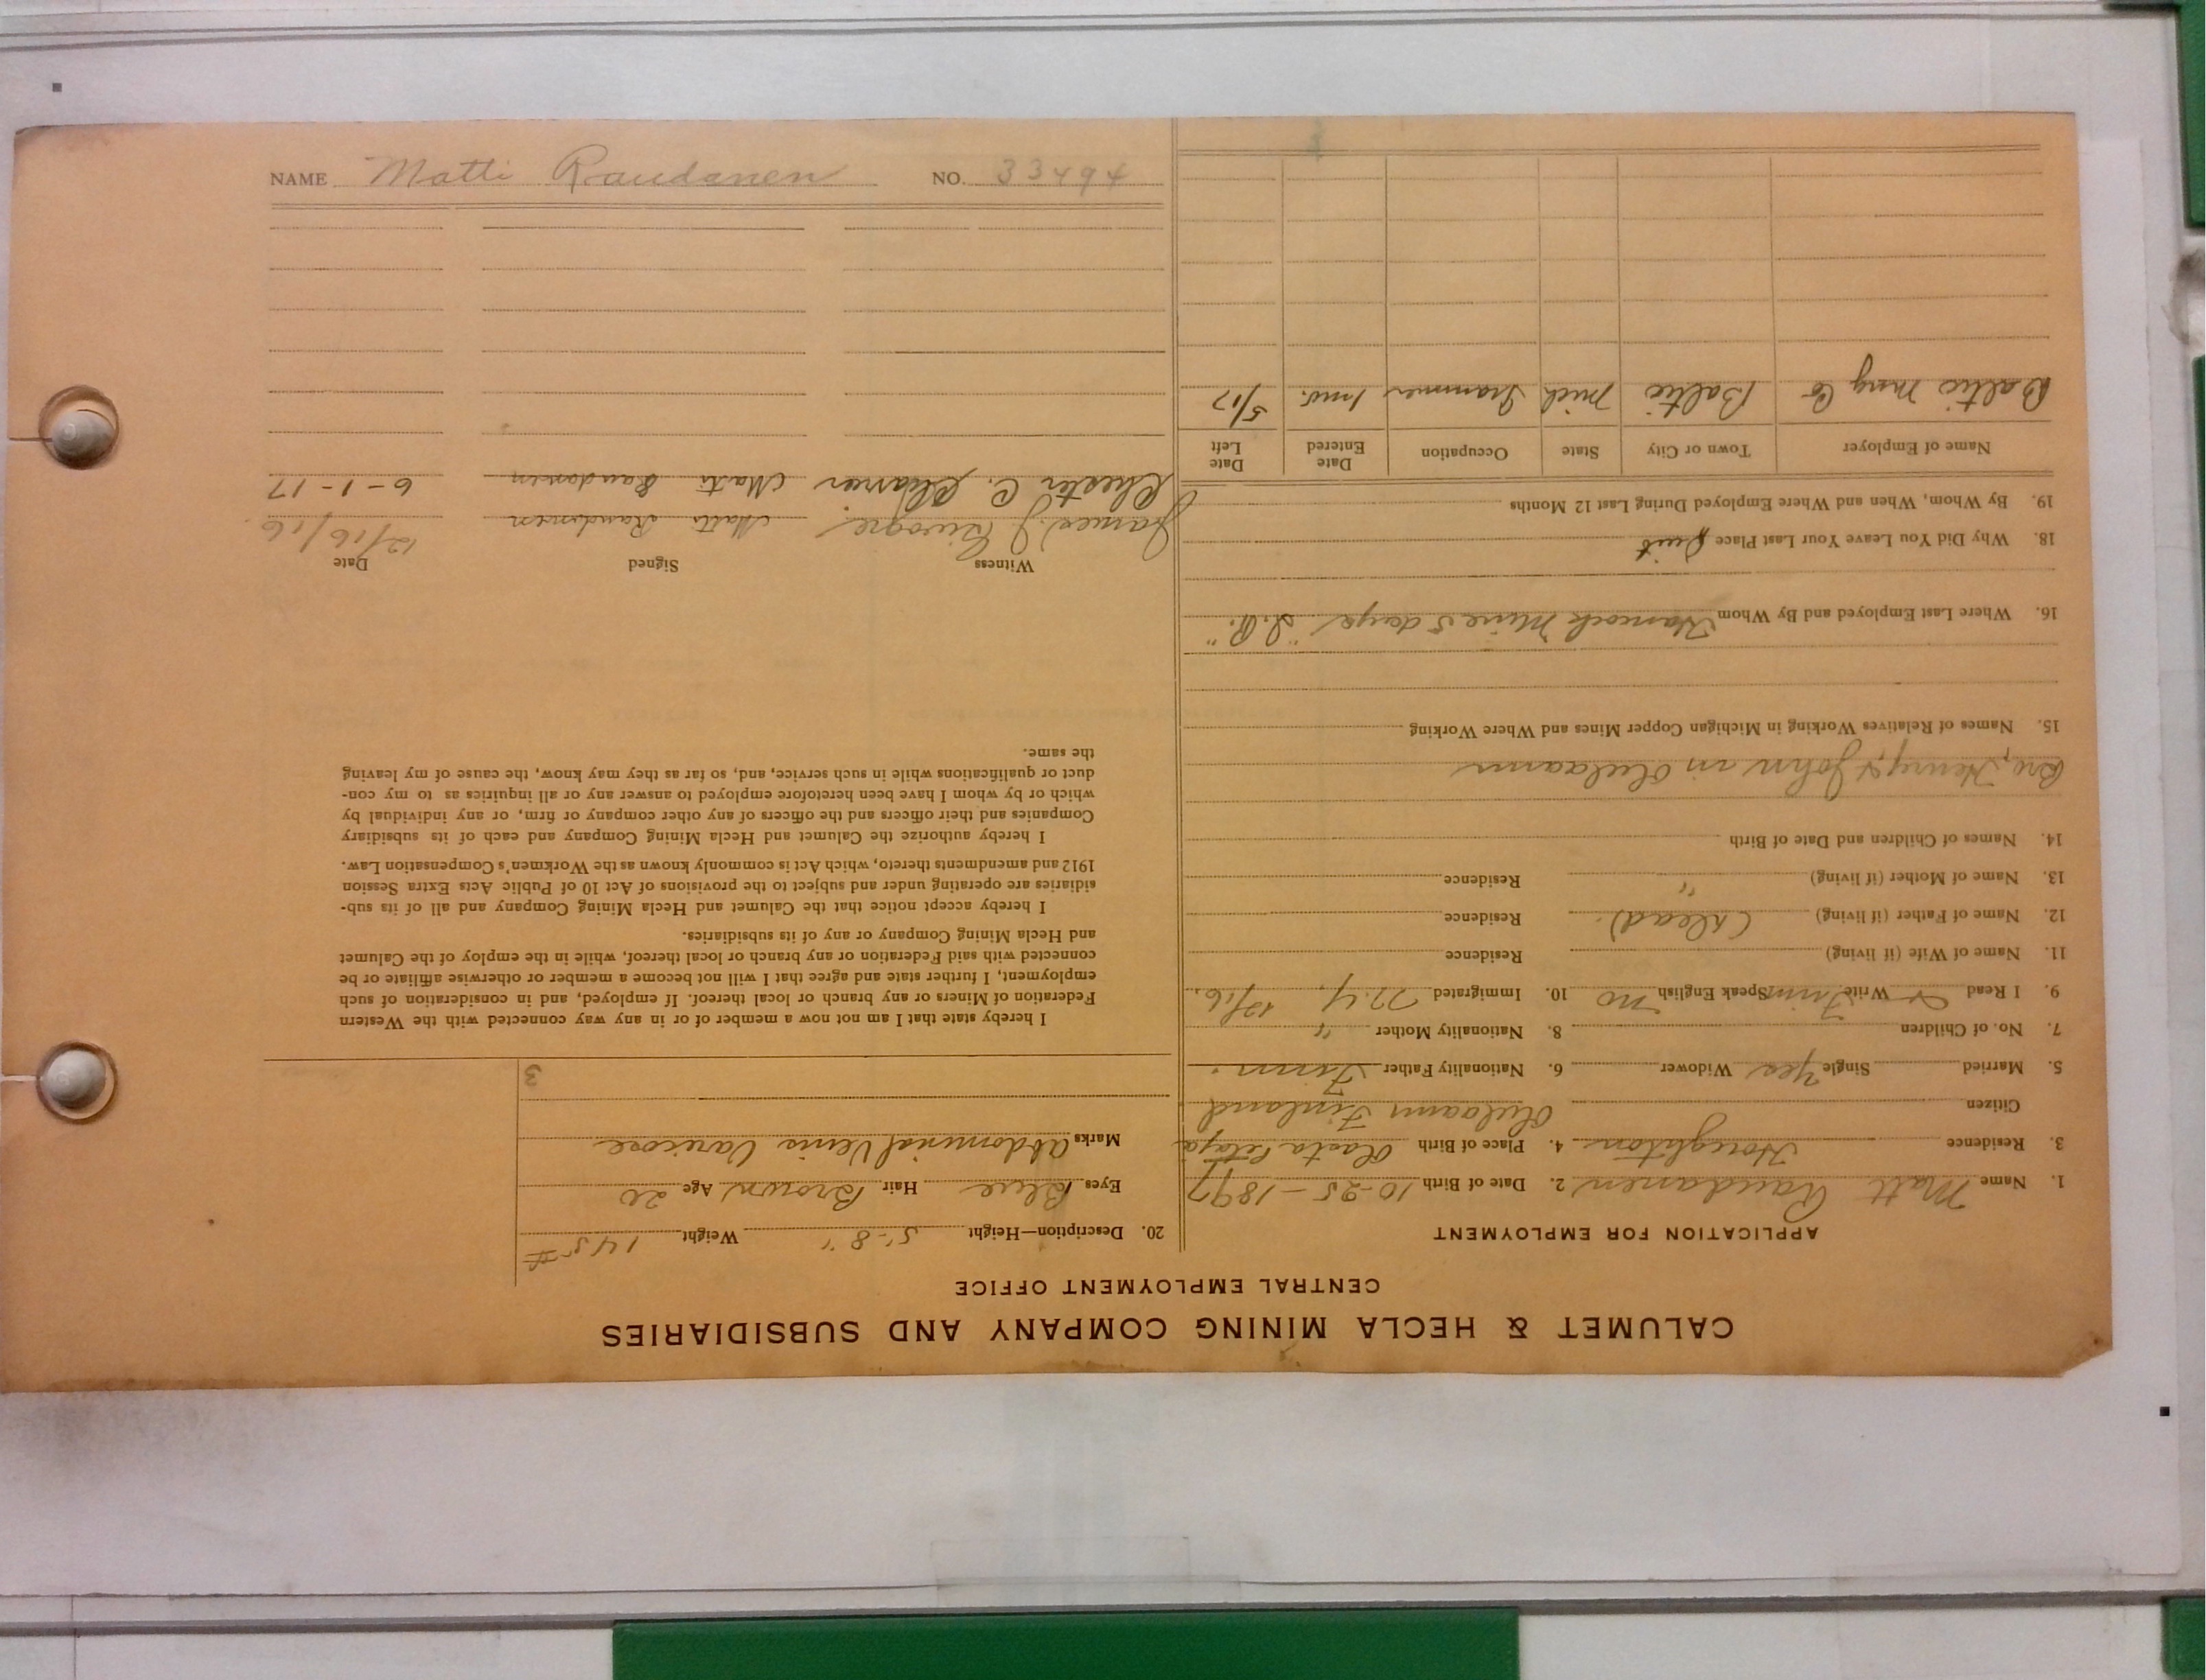 CALUMET & HECLA MINING COMPANY AND SUBSIDIARIES
CENTRAL EMPLOYMENT OFFICE
APPLICATION FOR EMPLOYMENT
1. Name Matt Raudanen 2. Date of Birth 10-25-1897
3. Residence Houghton 4. Place of Birth
Citizen Oulaann Finland
5. Married Single Yes Widower 6. Nationality Father Finn.
7. No. of Children 8. Nationality Mother "
9. I Read & Write Finn Speak English no 10. Immigrated N.Y. 12/16.
11. Name of Wife (if living) Residence
12. Name of Father (if living) (Dead). Residence
13. Name of Mother (if living) " Residence
14. Names of Children and Date of Birth
Bro, Henry & John in Oulaann
15. Names of Relatives Working in Michigan Copper Mines and Where Working
16. Where Last Employed and By Whom Hancock Mine 5 days "I.R."
18. Why Did You Leave Your Last Place Quit
19. By Whom, When and Where Employed During Last 12 Months
Name of Employer Town or City State Occupation Date Entered Date Left
Baltic Mng Co Baltic Mich Trammer 1 mo. 5/17
20. Description—Height 5'-8" Weight 145#
Eyes Blue Hair Brown Age 20
Marks Abdominal Veins Varicose
3
I hereby state that I am not now a member of or in any way connected with the Western
Federation of Miners or any branch or local thereof. If employed, and in consideration of such
employment, I further state and agree that I will not become a member or otherwise affiliate or be
connected with said Federation or any branch or local thereof, while in the employ of the Calumet
and Hecla Mining Company or any of its subsidiaries.
I hereby accept notice that the Calumet and Hecla Mining Company and all of its sub-
sidiaries are operating under and subject to the provisions of Act 10 of Public Acts Extra Session
1912 and amendments thereto, which Act is commonly known as the Workmen's Compensation Law.
I hereby authorize the Calumet and Hecla Mining Company and each of its subsidiary
Companies and their officers and the officers of any other company or firm, or any individual by
which or by whom I have been heretofore employed to answer any or all inquiries as to my con-
duct or qualifications while in such service, and, so far as they may know, the cause of my leaving
the same.
Witness Signed Date
James J Matti Raudanen 12/16/16
Chester C. Matti Raudanen 6-1-17
NAME Matti Raudanen NO. 33494